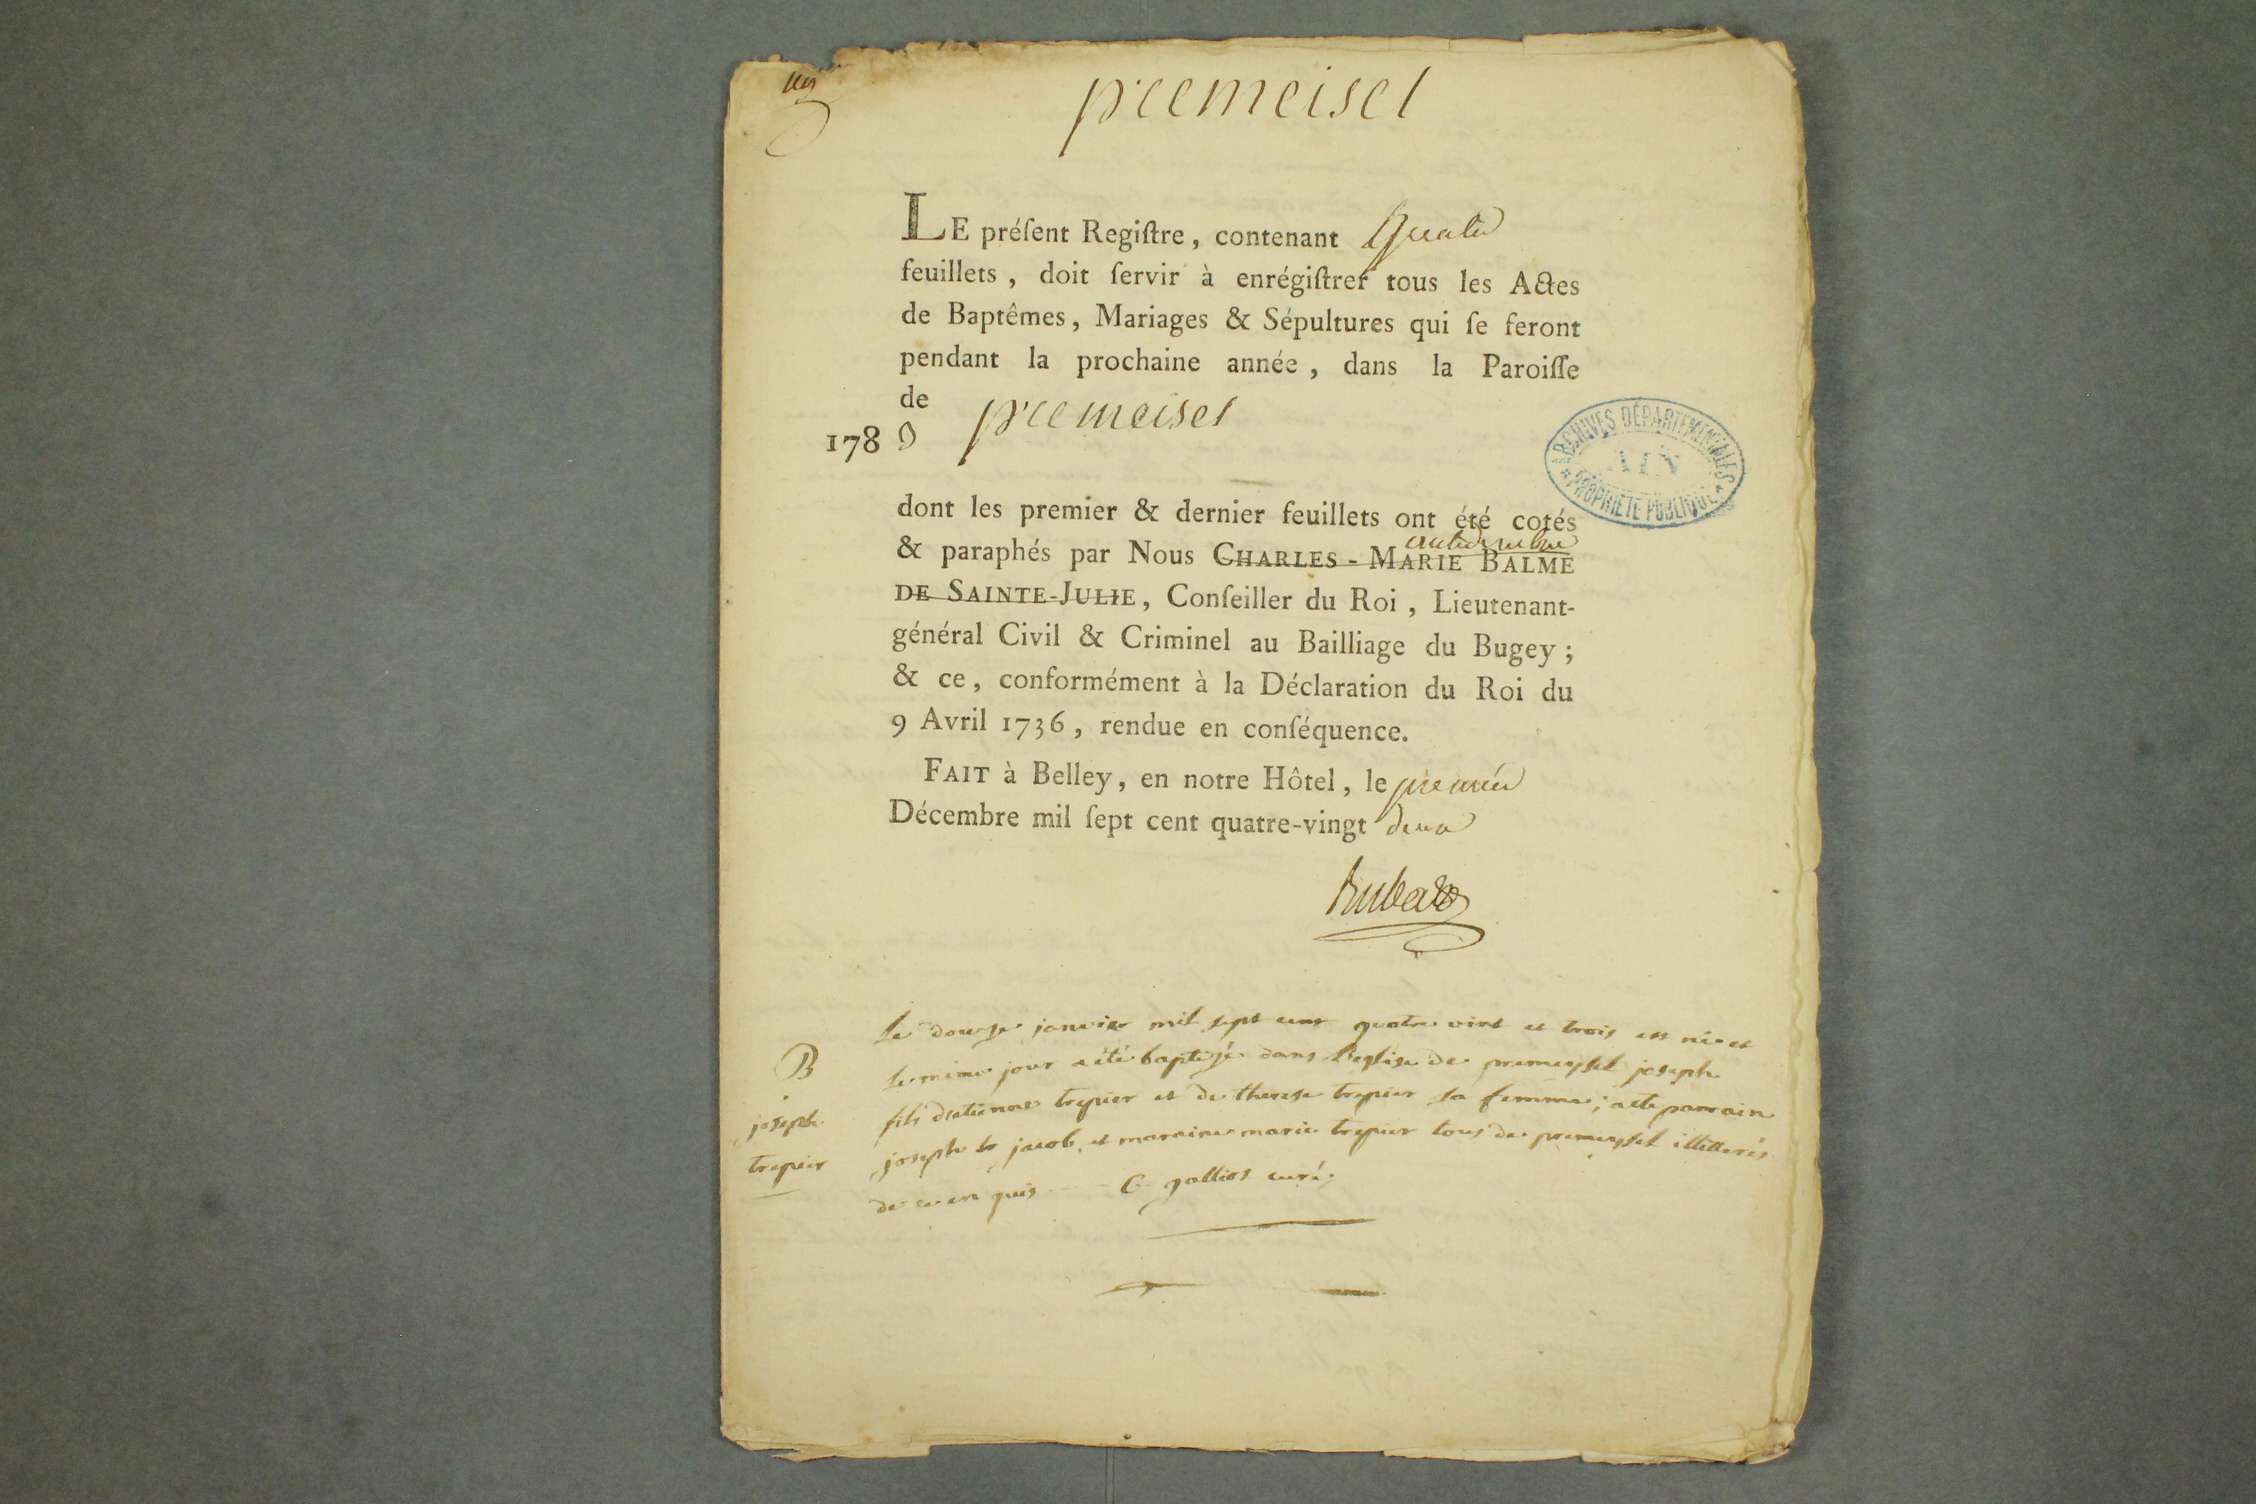 premeisel
LE préſent Regiſtre, contenant quatre
feuillets, doit ſervir à enrégiſtrer tous les Actes
de Baptêmes, Mariages & Sépultures qui ſe feront
pendant la prochaine année, dans la Paroiſſe
de premeisel
178
dont les premier & dernier feuillets ont été cotés
& paraphés par Nous CHARLES-MARIE BALME
DE SAINTE-JULIE, Conſeiller du Roi, Lieutenant-
général Civil & Criminel au Bailliage du Bugey;
& ce, conformément à la Déclaration du Roi du
9 Avril 1736, rendue en conſéquence.
FAIT à Belley, en notre Hôtel, le premier
Décembre mil ſept cent quatre-vingt deux
ARCHIVES DÉPARTEMENTALES
AIN
* PROPRIÉTÉ PUBLIQUE *
B
joseph
trepier
Le douze janvier mil sept cent quatre vint et trois est né et
le meme jour a été baptizé dans l'eglise de premeyssel joseph
fils d'etienne trepier et de therese trepier sa femme; a été parrain
joseph jacob, et maraine marie trepier tous de premeyssel illitterés
de ce enquis C. gallios curé